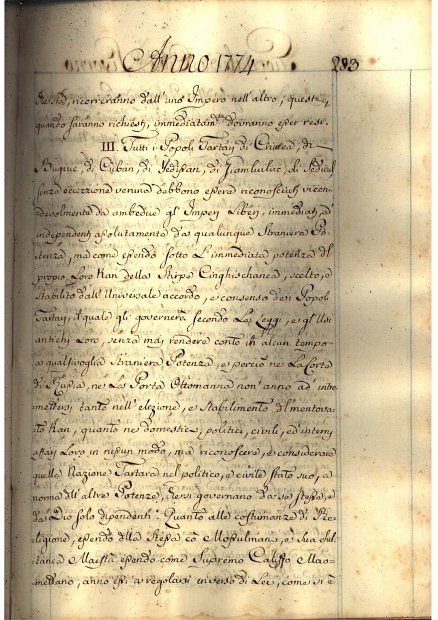 Anno 1774
283
deità, ricorreranno dall'uno Impero nell'altro, questi,
quando saranno richiesti, immediatam.te dovranno esser rese.
III. Tutti i Popoli Tartari di Crimea, di
Bugiuc, di Cuban, di Yedissan, di Jamluiluc, di Yedicul
senza eccezzione veruna debbono essere riconosciuti vicen
devolmente da ambedue gl'Imperj Liberi, immediati, ed
independenti assolutamente da qualunque straniera Po
tenza, ma come essendo sotto l'immediata potenza del
proprio loro Kan della Stirpe Cinghischanea, scelto, e
stabilito dall'Universale accordo, e consenso de'i Popoli
Tartari, il quale gli governerà secondo le Leggi, e gl'Usi
antichi loro, senza mai rendere conto in alcun tempo
a qualsivoglia straniera Potenza, e perciò ne La Corte
di Russia, ne La Porta Ottomanna non anno ad intro
mettersi tanto nell'elezione, e stabilimento del mentova
to Kan, quanto ne' domestici, politici, civili, ed interni
affari loro in nessun modo, ma riconoscere, e considerare
quella Nazione Tartara nel politico, e civile stato suo, a
norma dell'altre Potenze, che si governano da se stesse, e
da Dio solo dipendenti. Quanto alle costumanze di Re
ligione, essendo essa co' Mosulmani, e Sua Sul
tanea Maestà essendo come Supremo Califfo Mao-
mettano, anno essi a regolarsi inverso di Lei, come si è